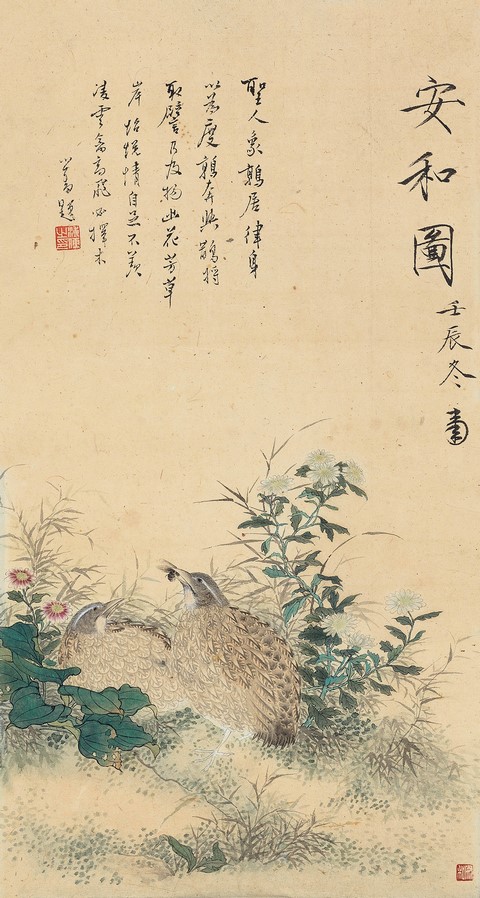 安和圖
壬辰冬
聖人象鶉居律身
以為度鶉奔與鵲將
取譬乃及物幽花芳草
岸怡悅情自然不羨
凌雲翕高飛必擇木
心畬題